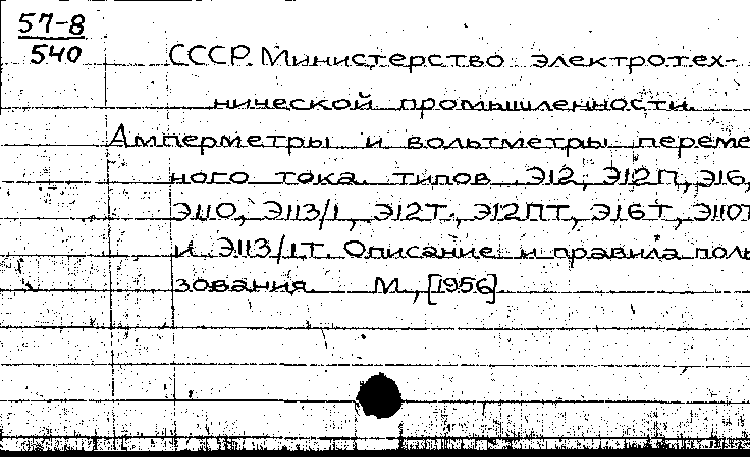 57-8
540
СССР. Министерство электротех-
нической промышленности.
Амперметры и вольтметры переме
ного тока типов Э12, Э12П, Э16,
Э110, Э113/1, Э12Т, Э12ПТ, Э16Т, Э110Т
и Э113/1Т. Описание и правила поль
зования. М., [1956].